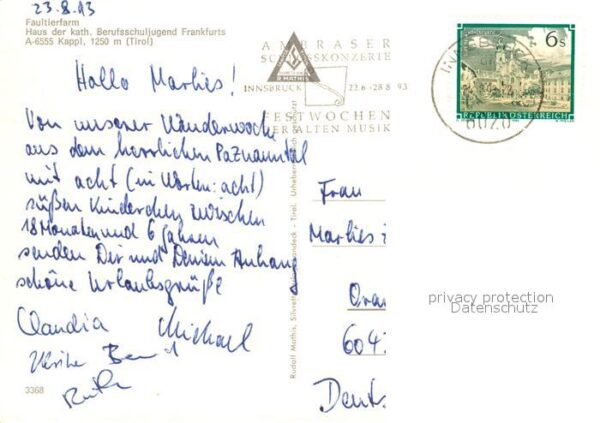 23.8.93
Faultierfarm
Haus der kath. Berufsschuljugend Frankfurts
A-6555 Kappl, 1250 m (Tirol)
Hallo Marlies!
Von unserer Wanderwoche
aus dem herrlichen Paznauntal
mit acht (in Worten: acht)
süßen Kinderchen zwischen
18 Monaten und 6 Jahren
senden Dir und Deinem Anhang
schöne Urlaubsgrüße
Claudia Michael
Ulrike Bernd
Ruth
3368
AMBRASER
SCHLOSSKONZERIE
R. MATHIS
INNSBRUCK 22.6-28.8 93
FESTWOCHEN
DER ALTEN MUSIK
Rudolf Mathis, Silvrett Landeck - Tirol. Urheberrecht
6 S
REPUBLIK ÖSTERREICH
6020
Frau
Marlies
Oran
604
Deut
privacy protection
Datenschutz